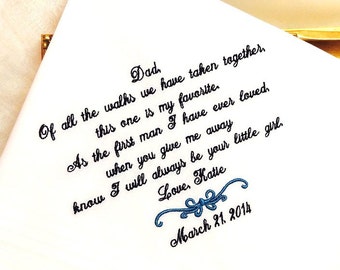 Dad,
Of all the walks we have taken together,
this one is my favorite.
As the first man I have ever loved,
when you give me away
know I will always be your little girl.
Love, Katie
March 21, 2014